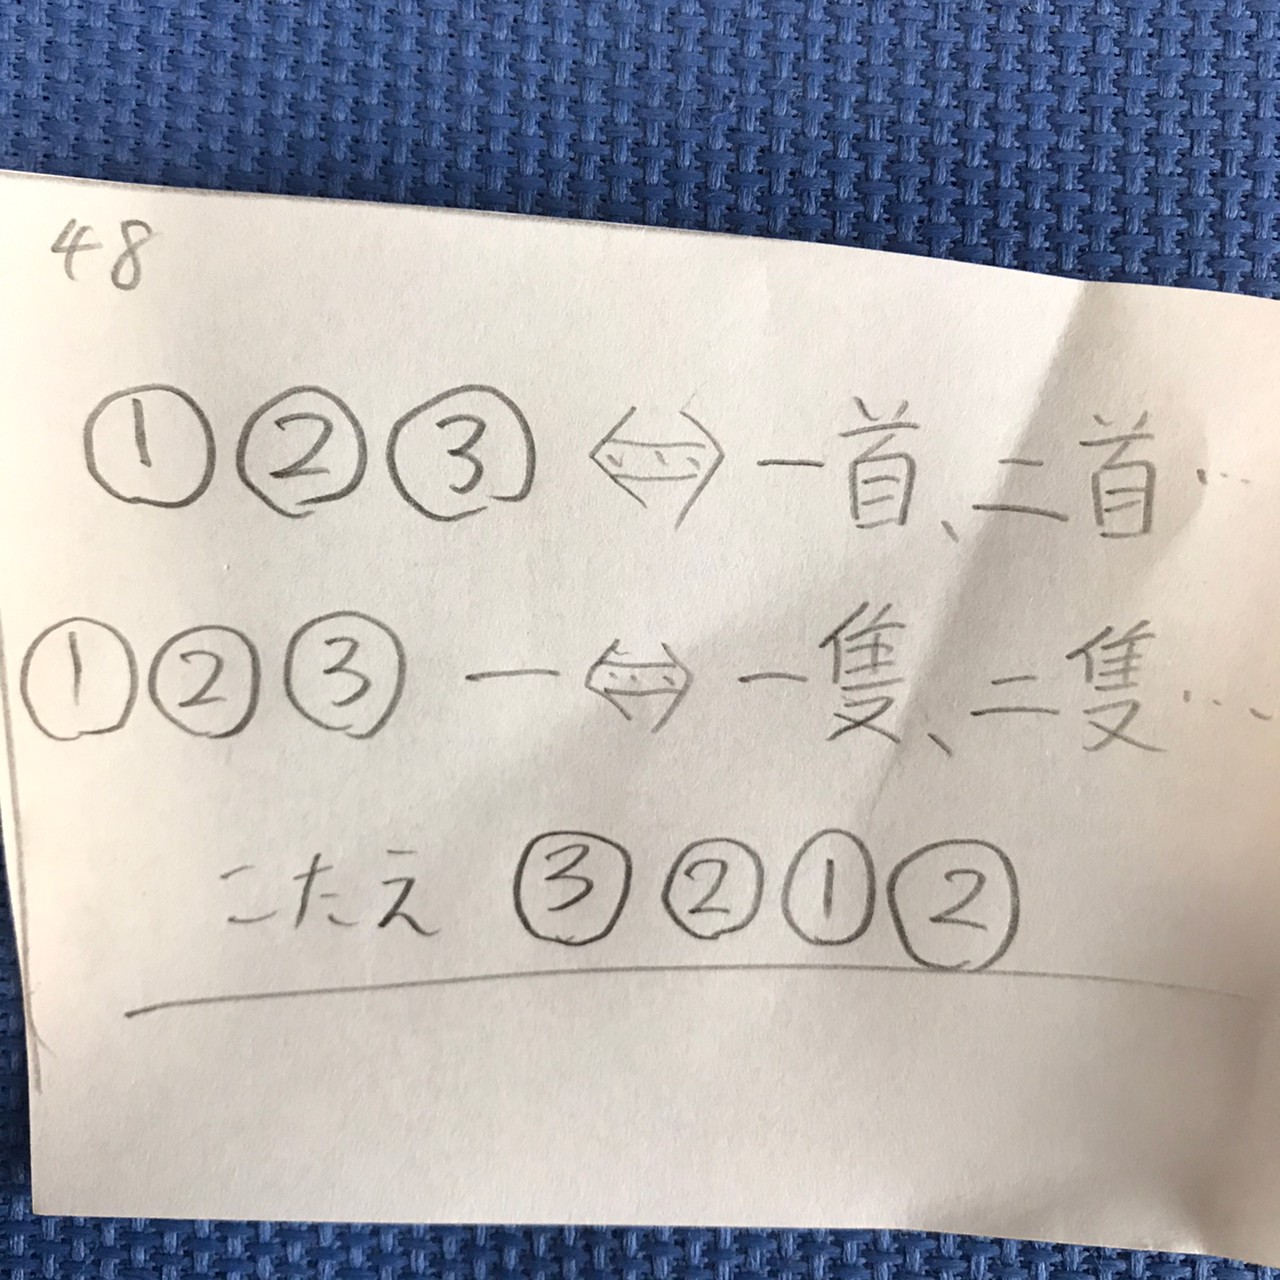 48
①②③⇔一首、二首…
①②③ー⇔一隻、二隻…
こたえ ③②①②